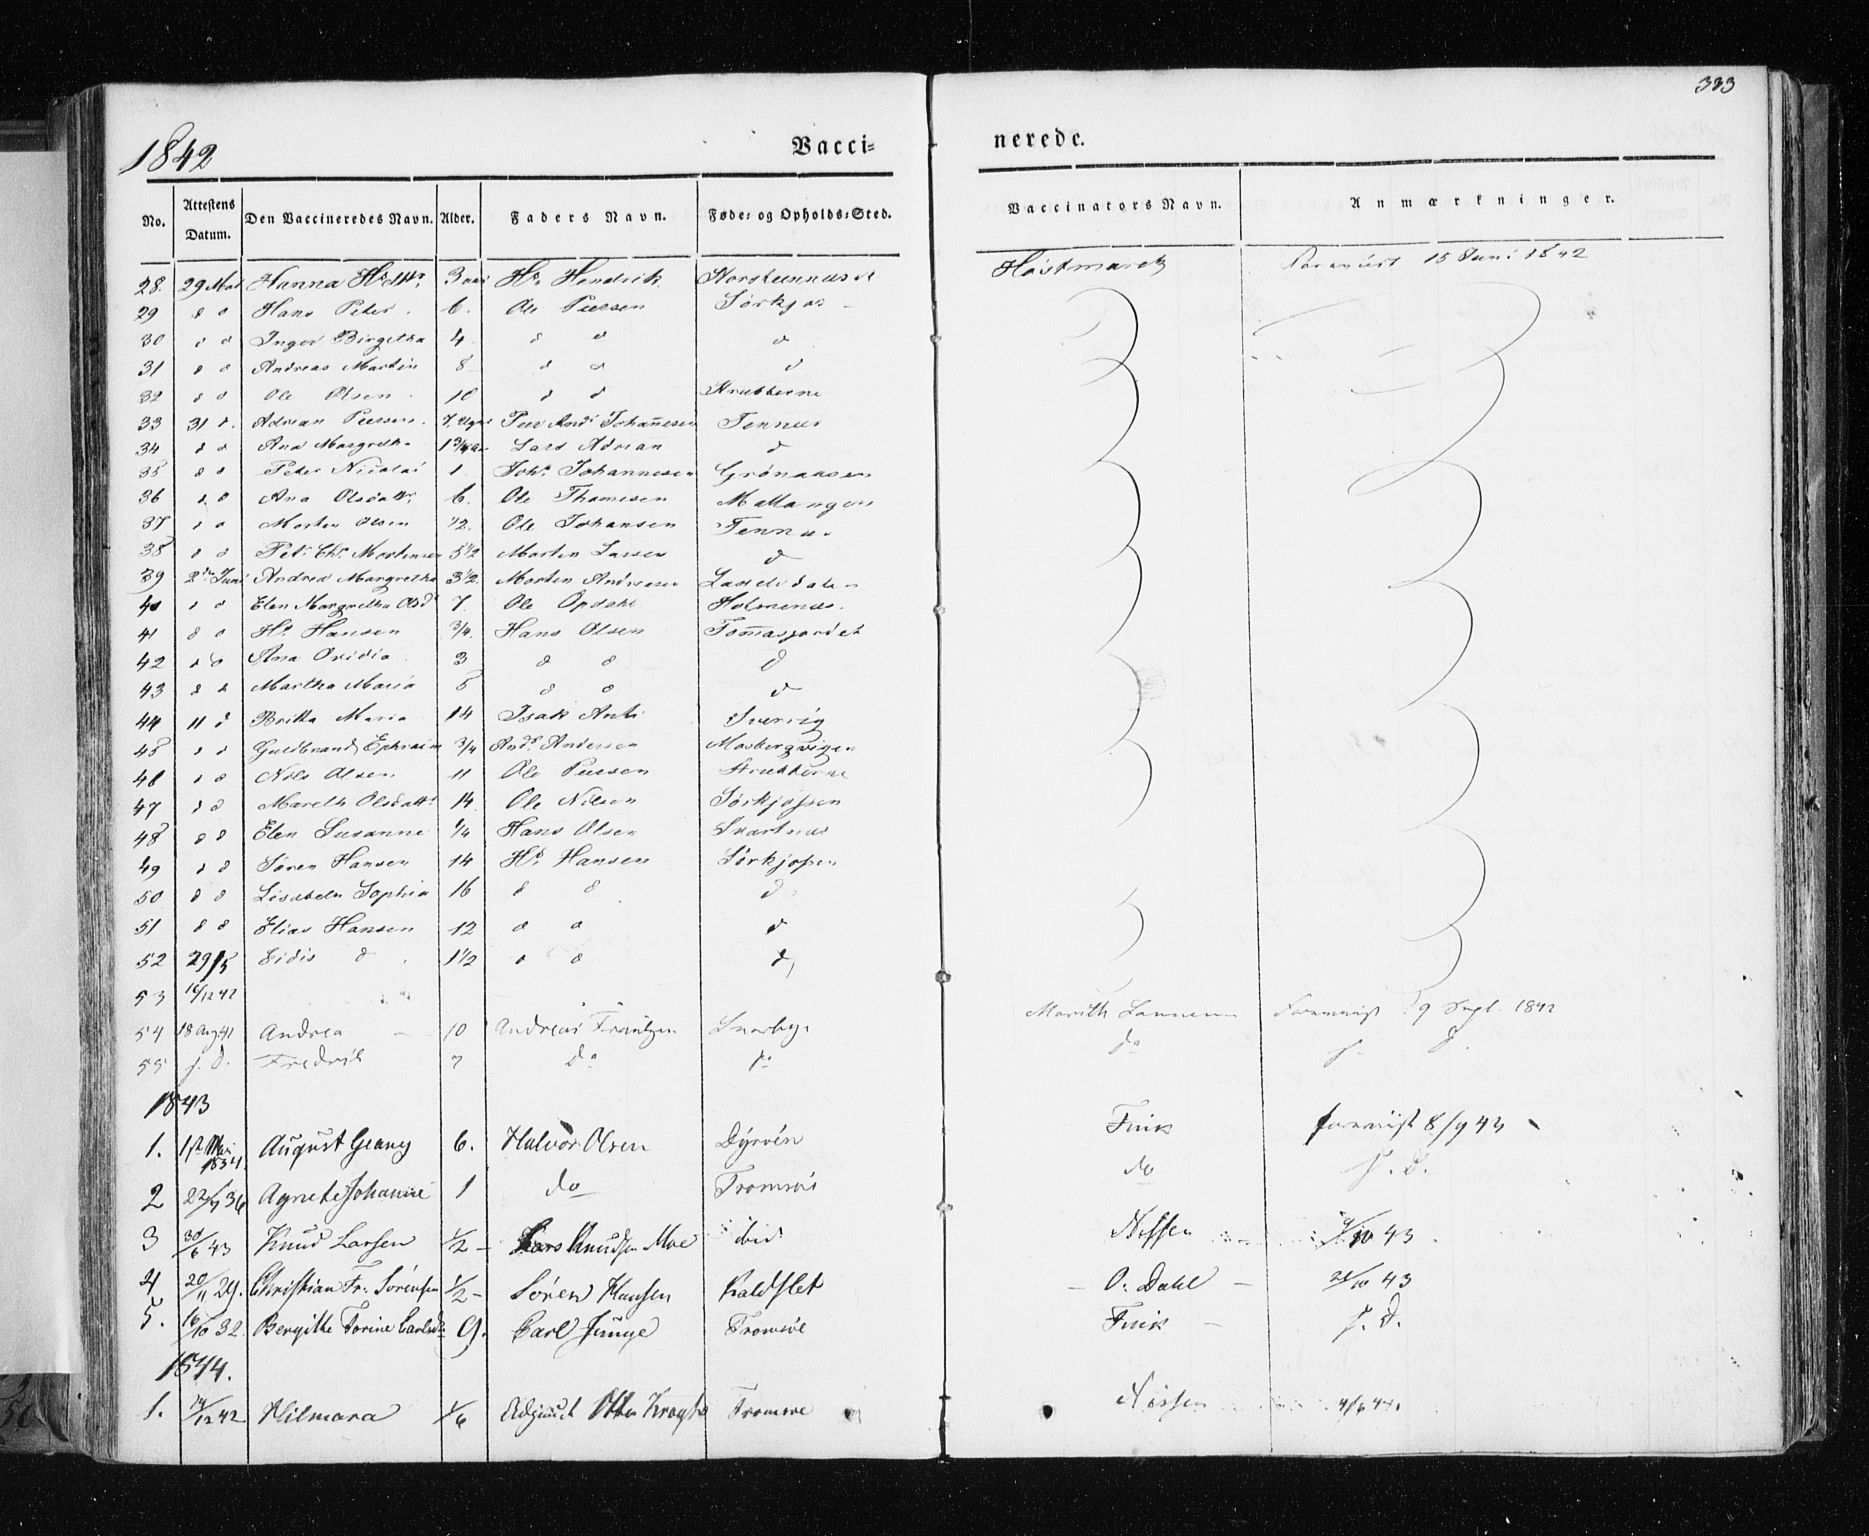 333
1842 Vacci= nerede.
No. Attestens Datum. Den Vaccineredes Navn. Alder. Faders Navn. Føde= og Opholds=Sted. Vaccinators Navn. Anmærkninger.
28. 29 Mai Hanna 3 Hs. Hendrik 15 Juni 1842
29 d o Hans Peter. 6. Ole Peersen Sørkjos
30 d o Inger Birgetha 4 d o d
31 d o Andreas Martin 8 d o d
32 d o Ole Olsen 10 d d
33 31 d. Adrian Peersen. 7 Peer Johannesen Tennes
34 d o Ana Margretha 1 3/4 Lars Adrian d
35 d o Peter Nicolai 1. Johs. Johannesen Grønaasen
36 d o Ana Olsdattr. 6. Ole Thomesen Mallangen
37 d o Morten Olsen 1/2. Ole Johansen Tennes
38 d o Pet. Chr. Mortensen 5 1/2 Morten Larsen d
39 2den Juni Andrea Margretha 3 1/2 Morten Andreasen
40 d o Elen Margretha Olsd 7. Ole Opdahl Holmenes.
41 d o Hs. Hansen 3/4. Hans Olsen Tomasjordet
42 d o Ana Ovidia 3 d o d
43 d o Martha Maria 5 d o d
44 11 d Britta Maria 14 Isak Anti Sverrig
45 d o Guldbrand Ephraim 3/4 Ands. Andersen Mosbergvigen
46 d o Nils Olsen 11 Ole Peersen
47 d o Mareth Olsdattr 14. Ole Nilsen Sørkjosen
48 d o Elen Susanne 1/4 Hans Olsen Svartnes
49 d o Søren Hansen 14 Hs. Hansen Sørkjosen
50 d o Lisabeth Sophia 16 d o d
51 d o Elias Hansen 12 d o d
52 29/5 Eidis d. 1 1/2 d o d
53 16/12 42
54 18 Aug 41 Andrea 10 Andreas Frantzen 9 Sept. 1842
55 s. d. Fredrik 7 do do do s. d.
1843
1. 1st Mai 1834 August Georg 6. Halvor Olsen Dyrøen Fink 8/9 43
2 22/7 36 Agnete Johanne 1 do Tromsøe do s. d.
3 30/6 43 Knud Larsen 1/2 Lars Knudsen Moe ibid Nissen 9/10 43
4 20/11 29. Christian Fr. Sørensen 1/2 Søren Hansen Kaldslet O. Dahl 21/10 43
5. 16/10 32 Bergitte Torine Carlsd 9. Carl Junge Tromsøe Fink s. d.
1844.
1. 14/12 42 Hilmara 1/6 Adjunct Otto Krogh Tromsøe Nissen 4/6 44.